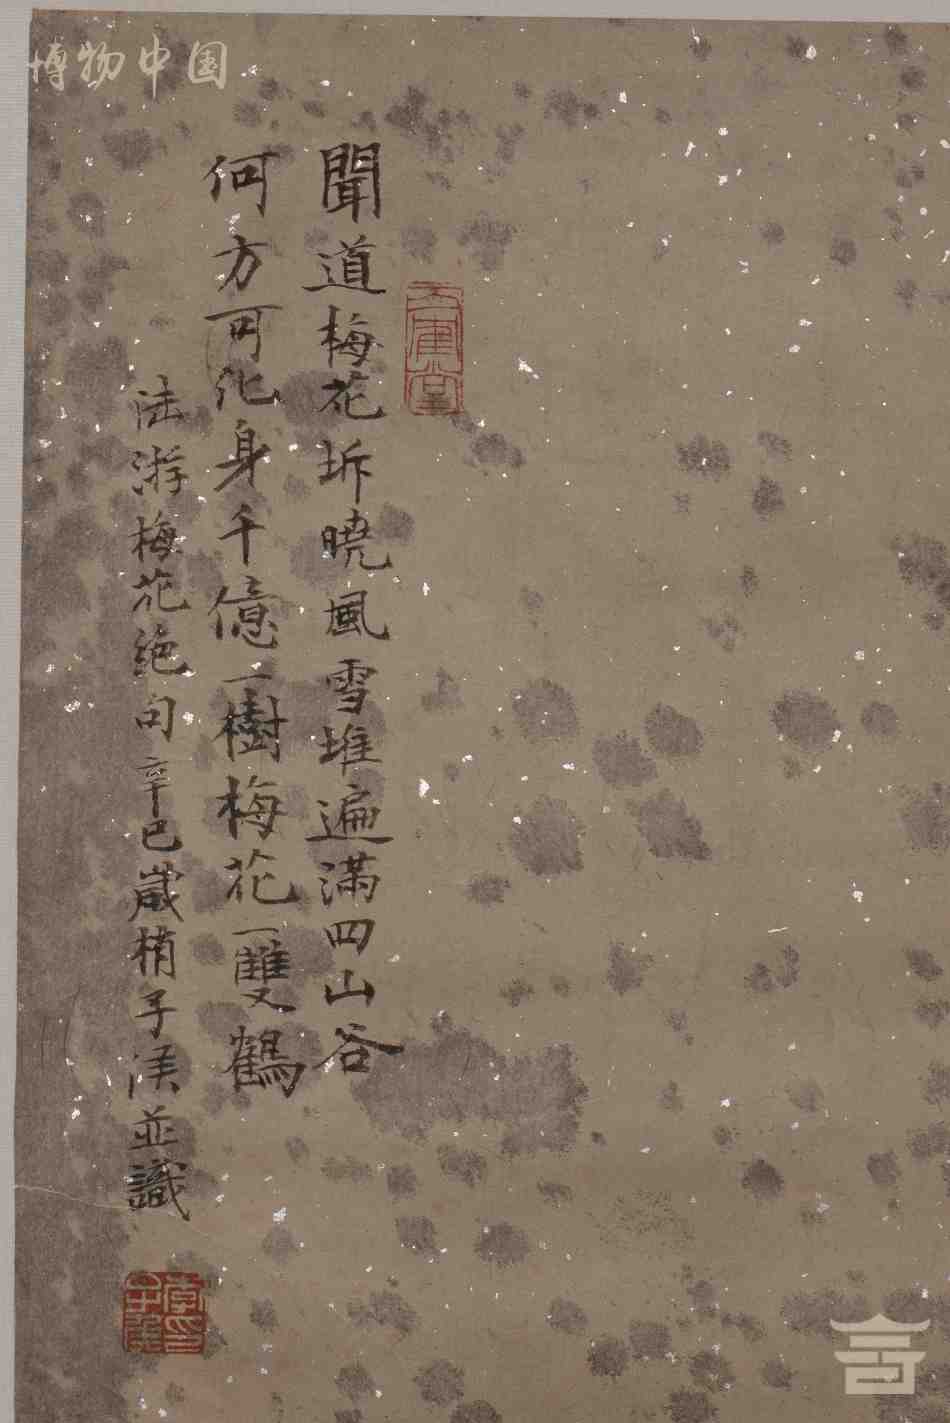 博物中国
聞道梅花坼曉風雪堆遍滿四山谷
何方可化身千億一樹梅花一雙鶴
陆游梅花绝句辛巳歲梢子漢並識